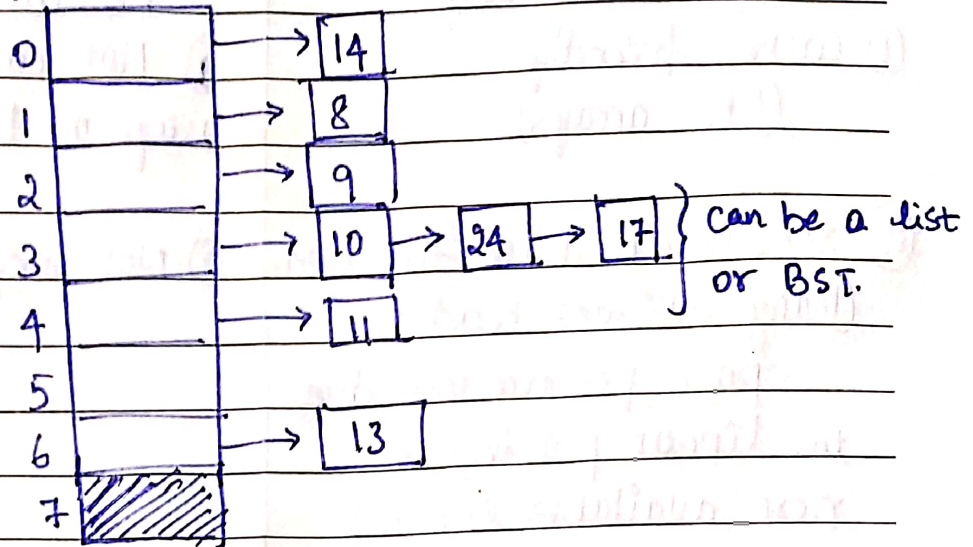 0 → 14
1 → 8
2 → 9
3 → 10 → 24 → 17 } can be a list
or BST.
4 → 11
5
6 → 13
7